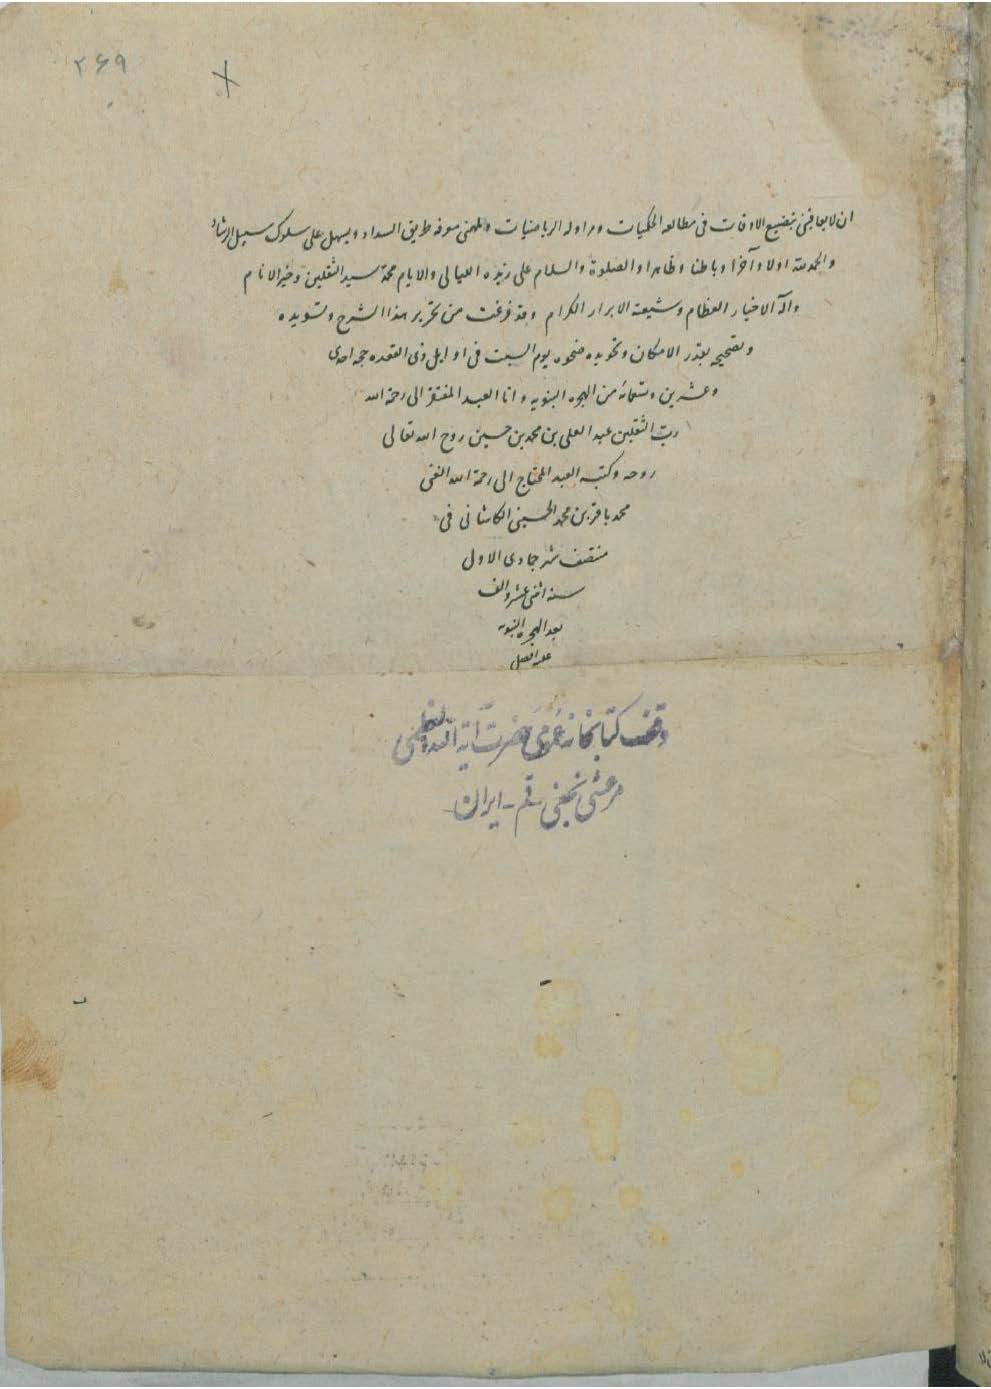 ۲۶۹
ان لا یعاقبنی بتضییع الاوقات فی مطالعه الحکمیات و مزاوله الریاضیات و یلهمنی معرفه طریق السداد و یسهل علی سلوک سبیل الرشاد
و الحمد لله اولا و آخرا و باطنا و ظاهرا و الصلوة و السلام علی زبده اللیالی والایام محمد سید الثقلین و خیر الانام
و آله الاخیار العظام و شیعته الابرار الکرام وقد فرغت من تحریر هذا الشرح و تسویده
و تصحیحه بقدر الامکان و تجویده ضحوه یوم السبت فی اوایل ذی القعده حجه احدی
و عشرین و تسعمائه من الهجره النبویه و انا العبد المفتقر الی رحمة الله
رب الثقلین عبد العلی بن محمد بن حسین روح الله تعالی
روحه و کتبه العبد المحتاج الی رحمة الله الغنی
محمد باقر بن محمد الحسینی الکاشانی فی
منتصف شهر جمادی الاول
سنه اثنی عشر و الف
بعد الهجره النبویه
وقف کتابخانه عمومی حضرت آیة الله العظمی
مرعشی نجفی - قم - ایران